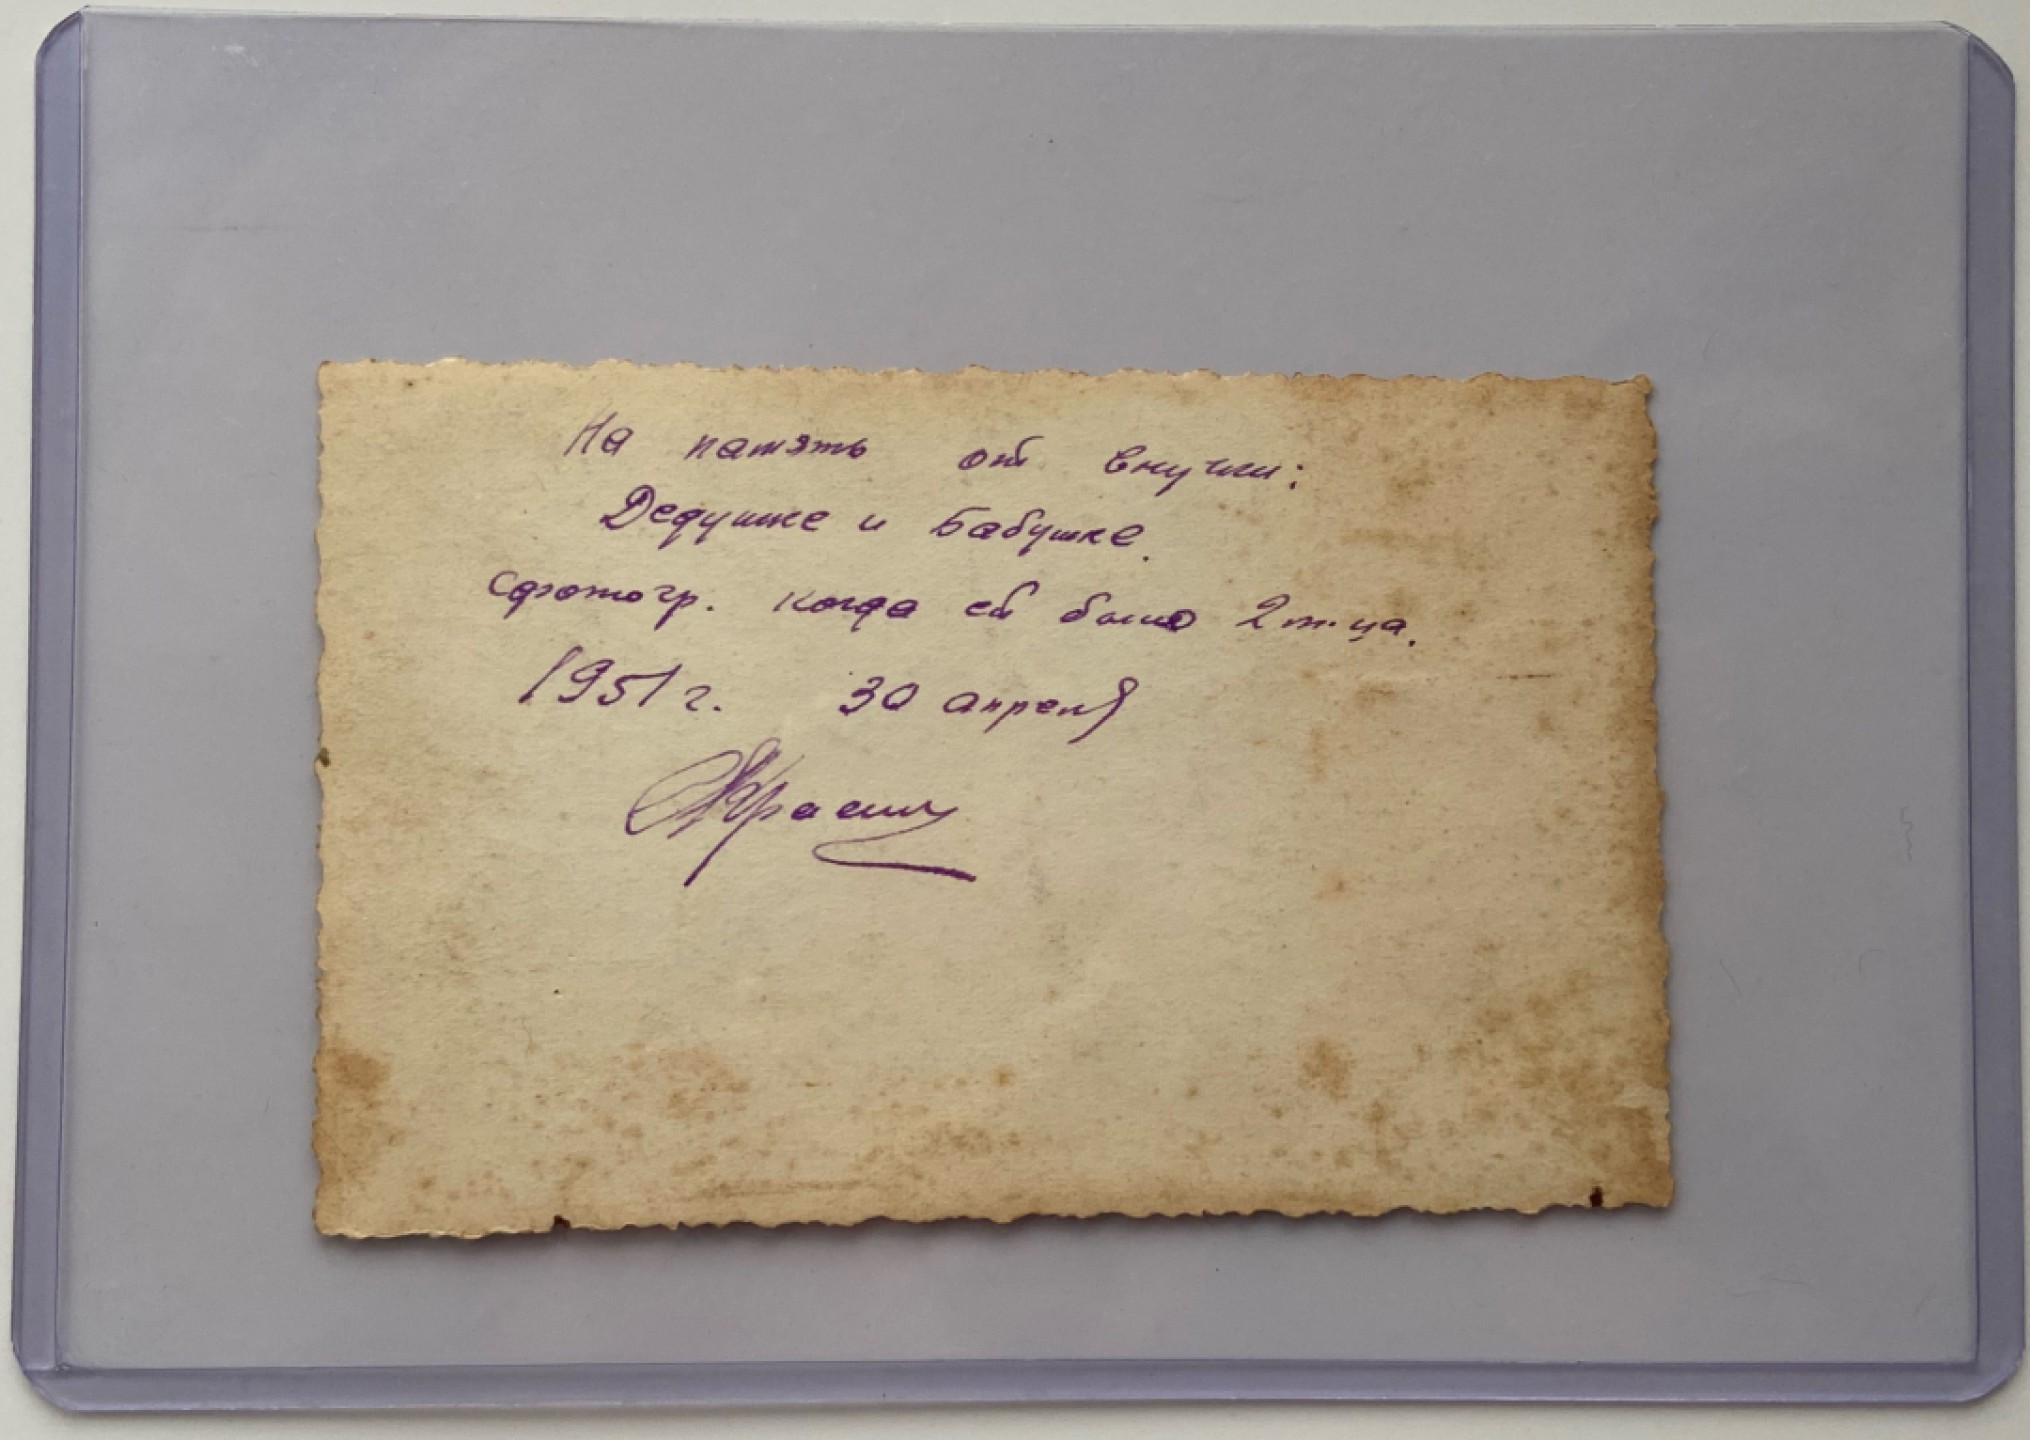 На память от внучки:
Дедушке и Бабушке.
сфотогр. когда ей было 2 м-ца.
1951 г. 30 апреля